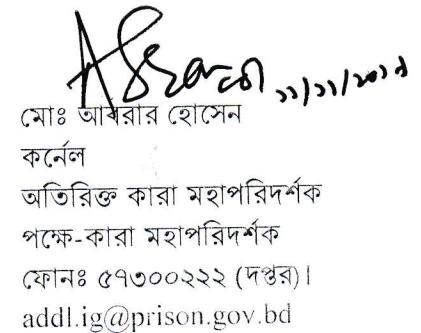 ১১/১১/২০১৯
মোঃ আবরার হোসেন
কর্নেল
অতিরিক্ত কারা মহাপরিদর্শক
পক্ষে-কারা মহাপরিদর্শক
ফোনঃ ৫৭৩০০২২২ (দপ্তর)।
addl.ig@prison.gov.bd